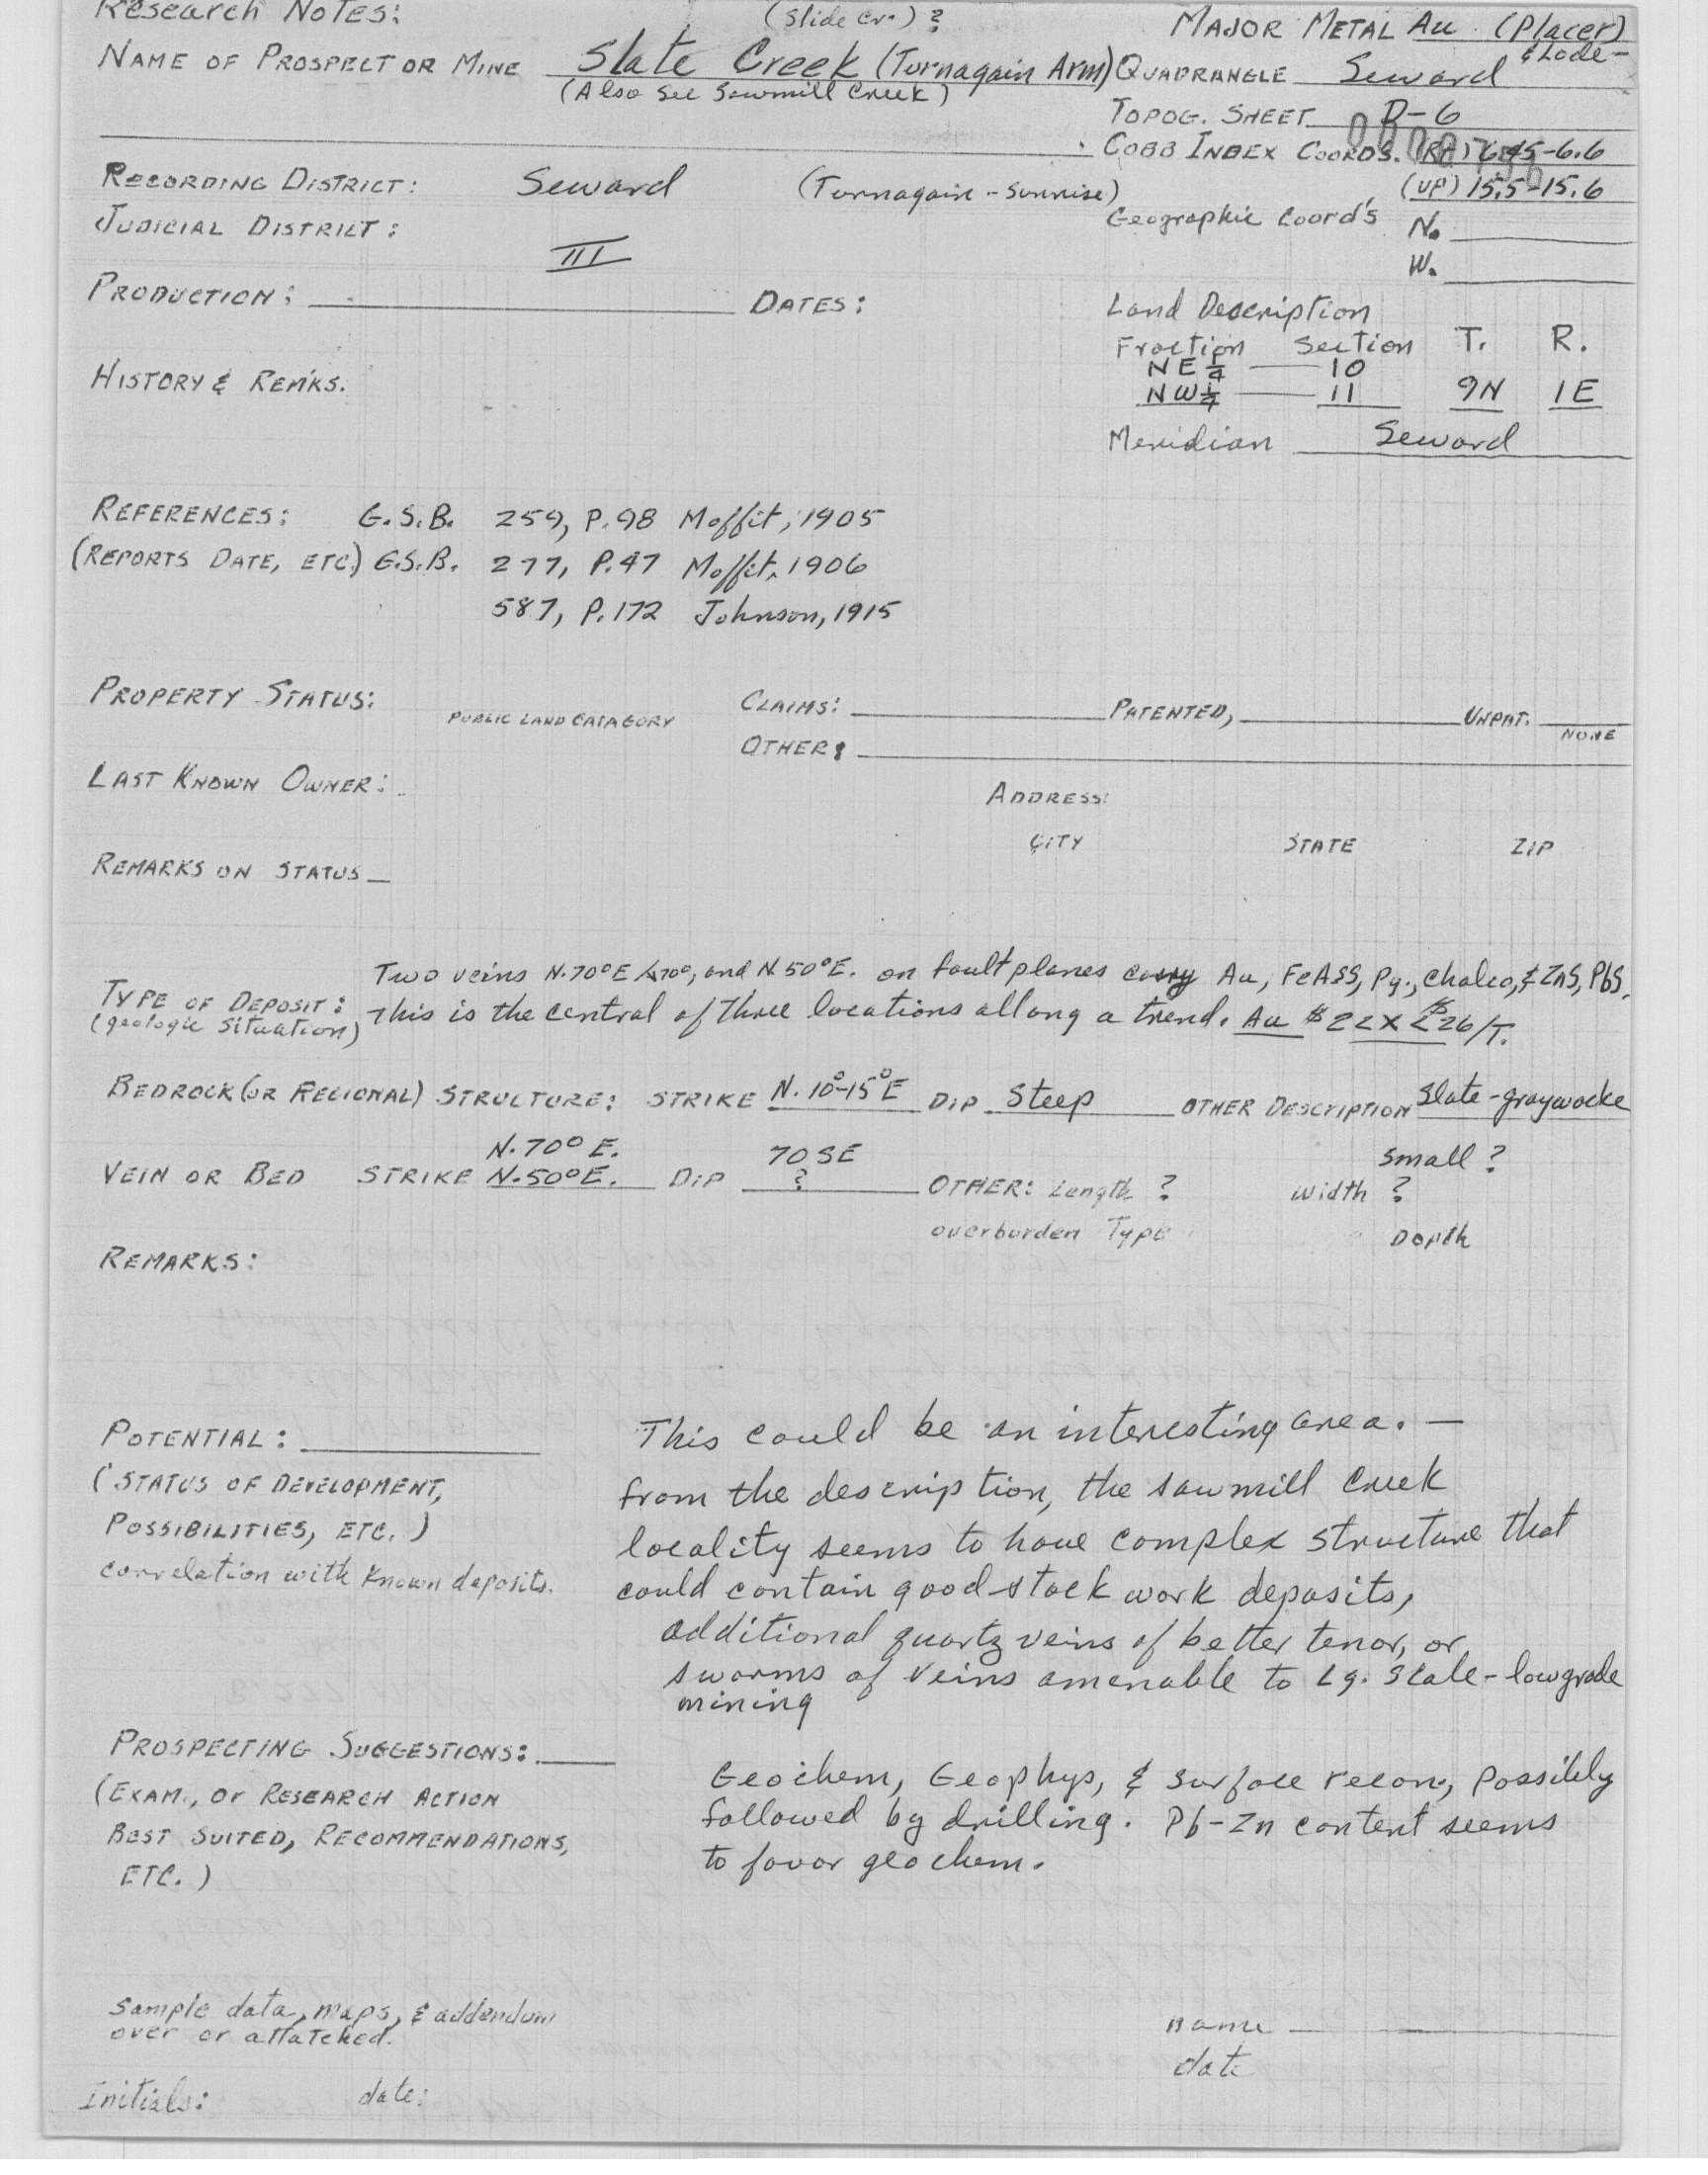 Research Notes: (Slide Cr.) ? MAJOR METAL Au (Placer)
& Lode-
NAME OF PROSPECT OR MINE Slate Creek (Turnagain Arm) QUADRANGLE Seward
(Also See Sawmill Creek)
TOPOG. SHEET D-6
COBB INDEX COORDS. (Rt) 6.45-6.6
RECORDING DISTRICT: Seward (Turnagain-Sunrise) (UP) 15.5-15.6
JUDICIAL DISTRICT: III Geographic Coord's N.
W.
PRODUCTION: DATES: Land Description
Fraction Section T. R.
HISTORY & REM'KS. NE 1/4 10
NW 1/4 11 9N 1E
Meridian Seward
REFERENCES: G.S.B. 259, P.98 Moffit, 1905
(REPORTS DATE, ETC.) G.S.B. 277, P.47 Moffit, 1906
587, P.172 Johnson, 1915
PROPERTY STATUS: PUBLIC LAND CATAGORY CLAIMS: PATENTED, UNPAT. NONE
OTHER:
LAST KNOWN OWNER: ADDRESS:
CITY STATE ZIP
REMARKS ON STATUS
Two veins N.70°E, and N 50°E. on fault planes carry Au, FeAsS, Py., Chalco, & ZnS, PbS.
TYPE OF DEPOSIT: This is the central of three locations allong a trend. Au $22 X <$26/T.
(geologic situation)
BEDROCK (OR REGIONAL) STRUCTURE: STRIKE N. 10°-15°E DIP Steep OTHER DESCRIPTION Slate-graywacke
N.70° E. 70 SE Small ?
VEIN OR BED STRIKE N.50°E. DIP ? OTHER: Length ? width ?
overburden Type Depth
REMARKS:
POTENTIAL: This could be an interesting area. —
(STATUS OF DEVELOPMENT, from the description, the sawmill Creek
POSSIBILITIES, ETC.) locality seems to have complex structure that
correlation with known deposits. could contain good stock work deposits,
additional quartz veins of better tenor, or
swarms of veins amenable to Lg. Scale-lowgrade
mining
PROSPECTING SUGGESTIONS: Geochem, Geophys, & Surface recon, possibly
(EXAM., or RESEARCH ACTION followed by drilling. Pb-Zn content seems
BEST SUITED, RECOMMENDATIONS, to favor geochem.
ETC.)
Sample data, maps, & addendum
over or attatched. name
date
Initials: date: